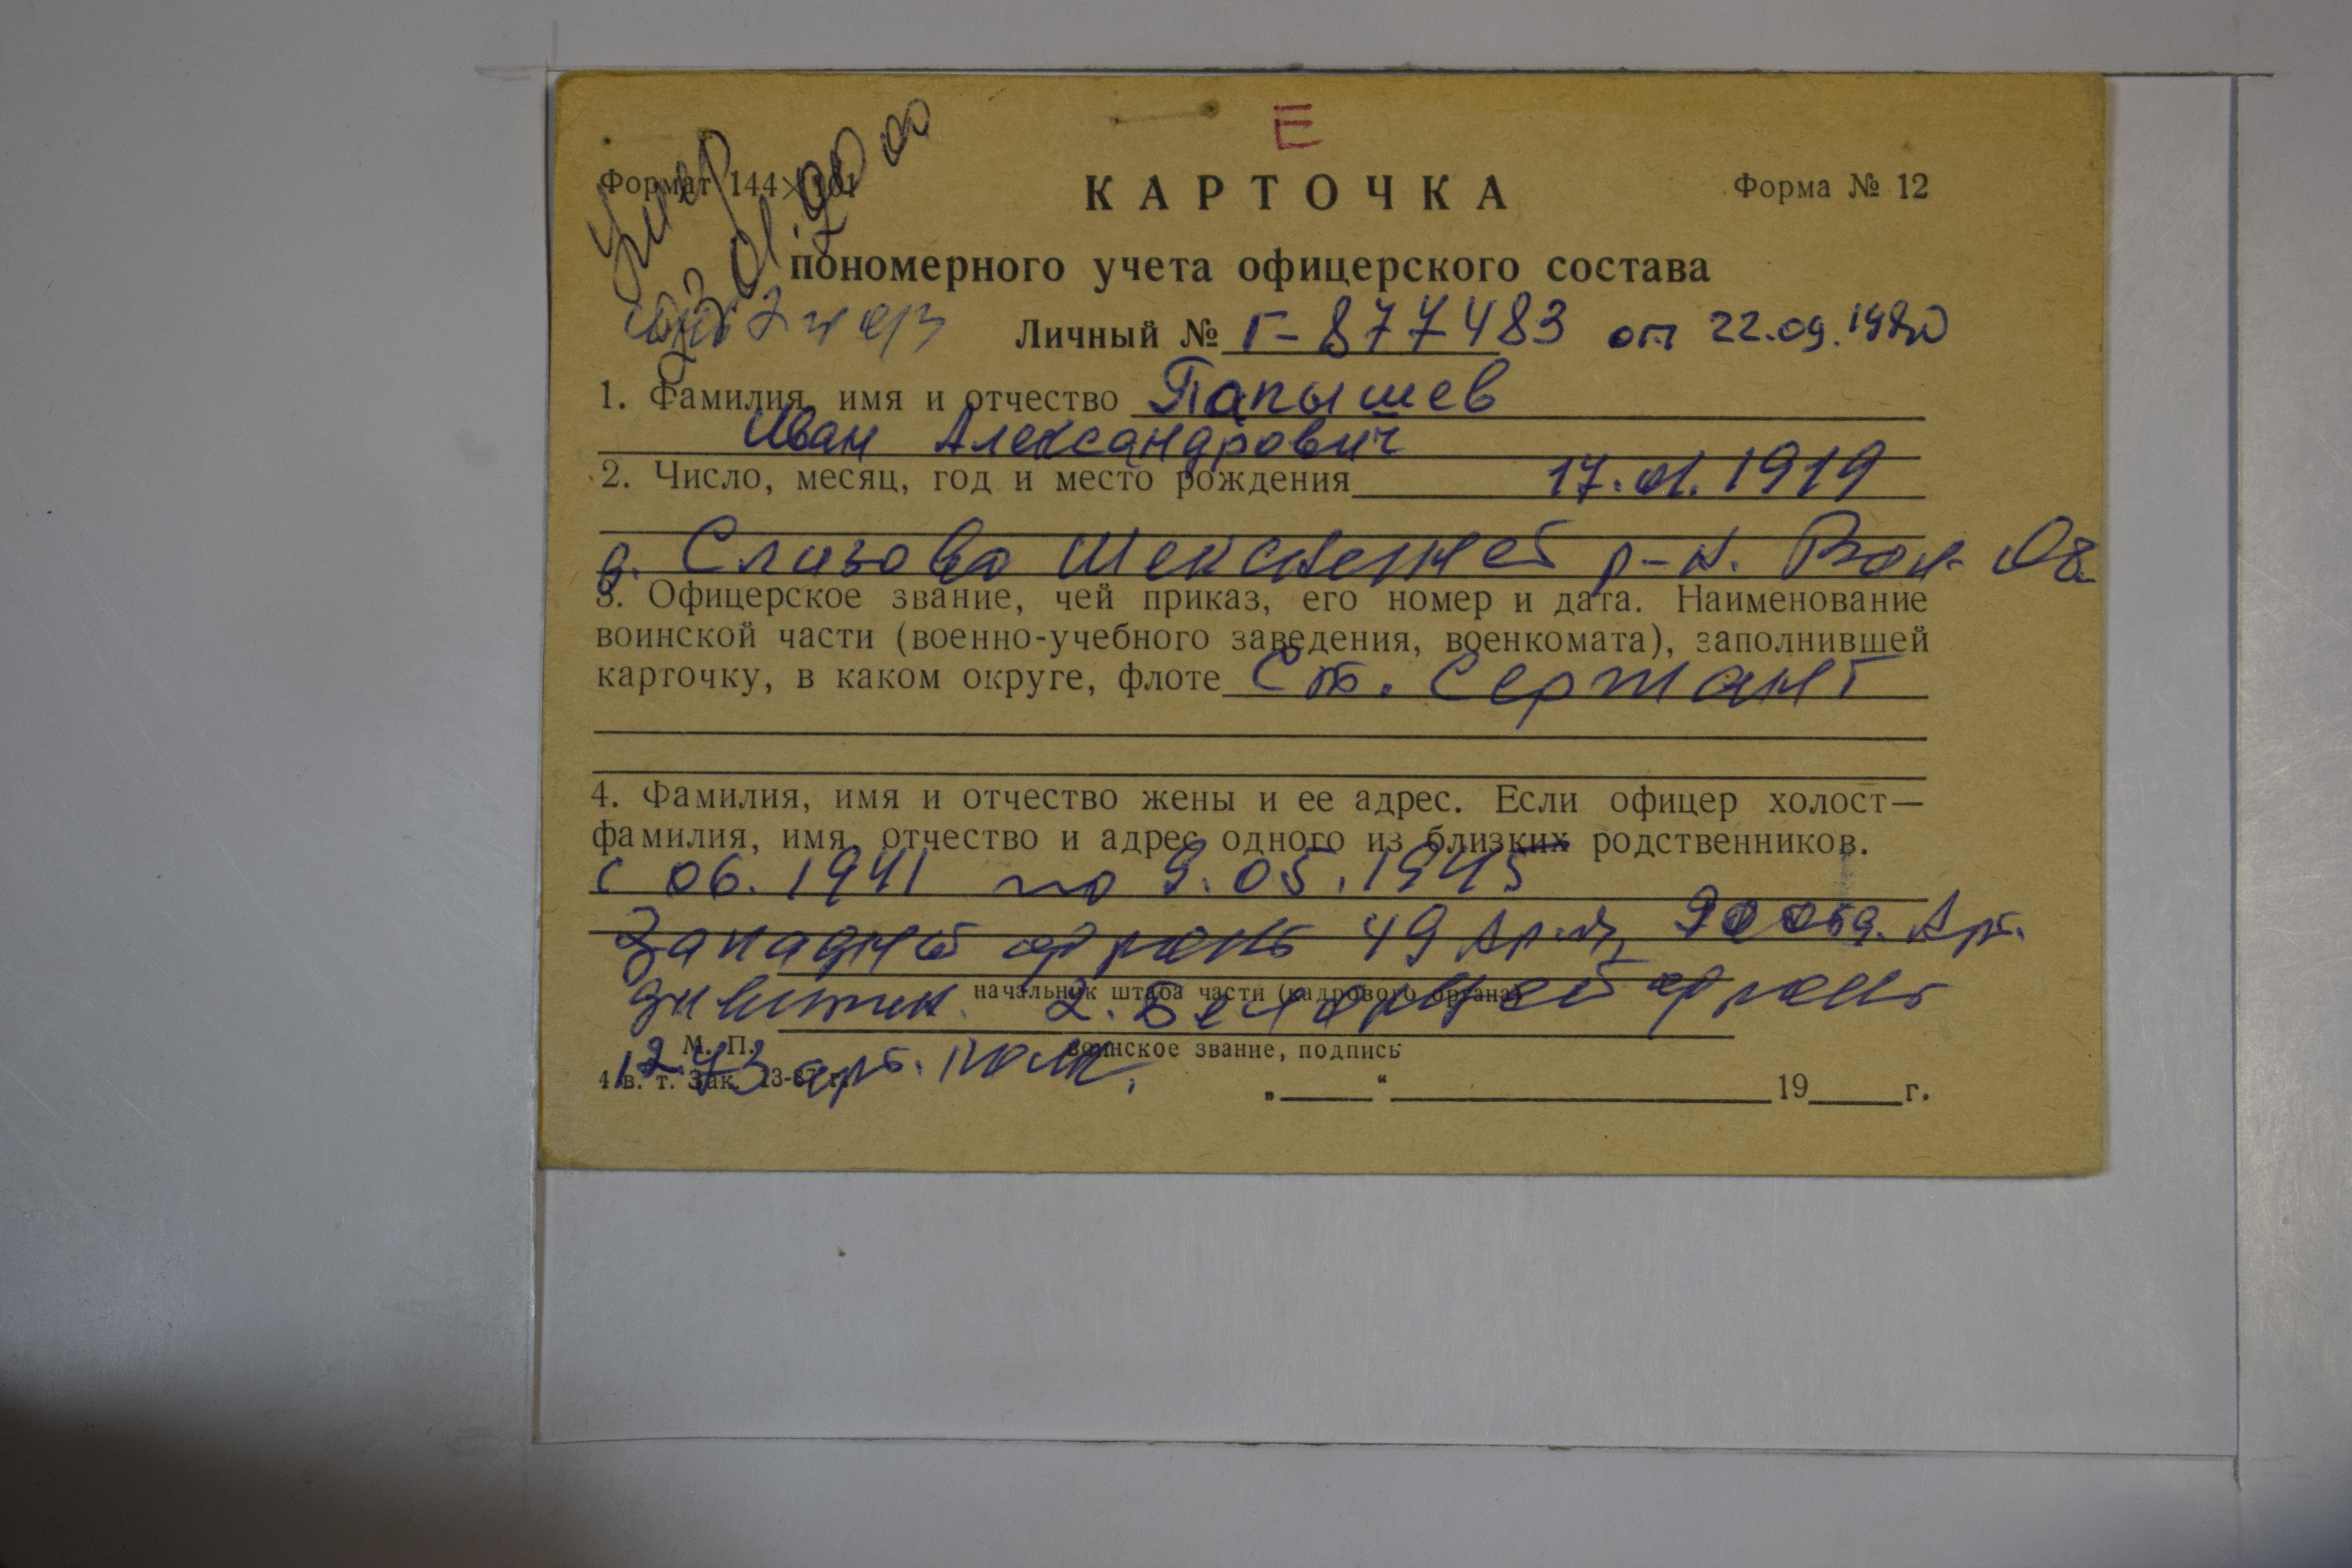 Е
Формат 144×101
Форма № 12
КАРТОЧКА
пономерного учета офицерского состава
Умер
Личный № Г-877483 от 22.09.1980
1. Фамилия, имя и отчество Папышев
Иван Александрович
2. Число, месяц, год и место рождения 17.01.1919
д. Слизово р-н. Вол. Об
3. Офицерское звание, чей приказ, его номер и дата. Наименование
воинской части (военно-учебного заведения, военкомата), заполнившей
карточку, в каком округе, флоте Ст. Сержант
4. Фамилия, имя и отчество жены и ее адрес. Если офицер холост—
фамилия, имя, отчество и адрес одного из близких родственников.
с 06.1941 по 9.05.1945
Западной фронт 49 Арм, Арт.
дивизион. 2. фронт
начальник штаба части (кадрового органа)
М. П.
воинское звание, подпись
арт. полк.
4 в. т. Зак.
„ “ 19 г.